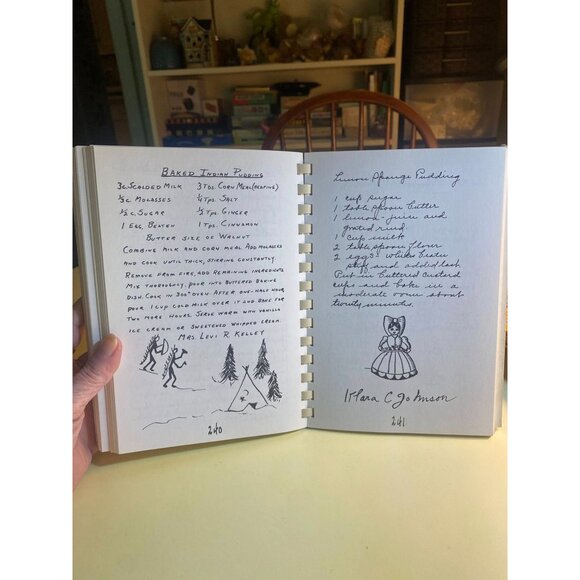 BAKED INDIAN PUDDING
3c. SCOLDED MILK 3 TDS. CORN MEAL (HEAPING)
1/3c MOLASSES 3/4 TPS. SALT
1/2c SUGAR 1/2 TPS. GINGER
1 EGG, BEATEN 1 TPS. CINNAMON
BUTTER SIZE OF WALNUT
COMBINE MILK AND CORN MEAL. ADD MOLASSES
AND COOK UNTIL THICK, STIRRING CONSTANTLY.
REMOVE FROM FIRE, ADD REMAINING INGREDIENTS
MIX THOROUGHLY, POUR INTO BUTTERED BAKING
DISH. COOK IN 300° OVEN AFTER ONE-HALF HOUR
POUR 1 CUP COLD MILK OVER IT AND BAKE FOR
TWO MORE HOURS. SERVE WARM WITH VANILLA
ICE CREAM OR SWEETENED WHIPPED CREAM.
MRS. LEVI R. KELLEY
240
Lemon Sponge Pudding
1 cup sugar
1 table spoon butter
1 lemon - juice and
grated rind
1 cup milk
2 table spoon flour
2 eggs - whites beaten
stiff and added last
Put in buttered custard
cups and bake in a
moderate oven about
twenty minutes.
Klara C Johnson
241